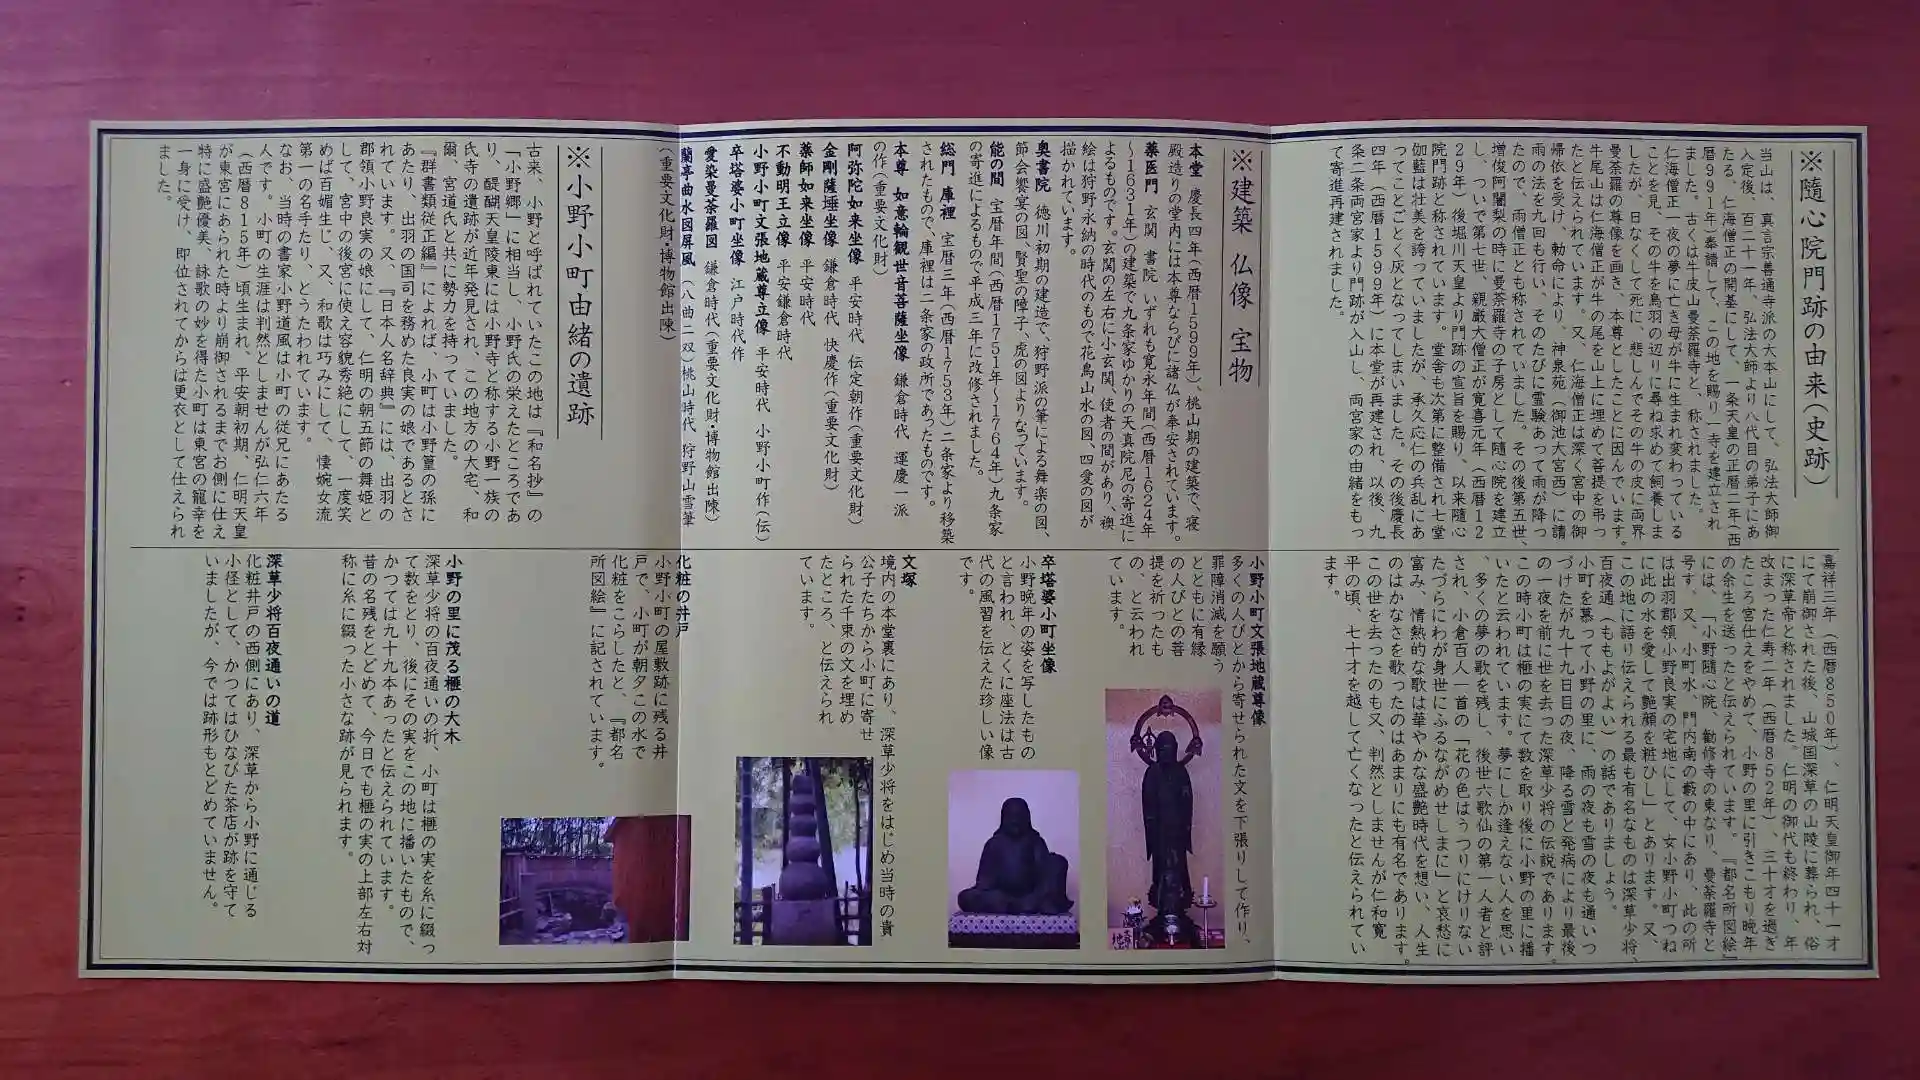 ※隨心院門跡の由来(史跡)
当山は、真言宗善通寺派の大本山にして、弘法大師御
入定後、百二十一年、弘法大師より八代目の弟子にあ
たる、仁海僧正の開基にして、一条天皇の正暦二年(西
暦991年)奉請して、この地を賜り一寺を建立され
ました。古くは牛皮山曼荼羅寺と、称されました。
仁海僧正一夜の夢に亡き母が牛に生まれ変わっている
ことを見、その牛を鳥羽の辺りに尋ね求めて飼養しま
したが、日なくして死に、悲しんでその牛の皮に両界
曼荼羅の尊像を画き、本尊としたことに因んでいます。
牛尾山は仁海僧正が牛の尾を山上に埋めて菩提を弔っ
たと伝えられています。又、仁海僧正は深く宮中の御
帰依を受け、勅命により、神泉苑(御池大宮西)に請
雨の法を九回も行い、そのたびに霊験あって雨が降っ
たので、雨僧正とも称されていました。その後第五世、
増俊阿闍梨の時に曼荼羅寺の子房として隨心院を建立
し、ついで第七世 親厳大僧正が寛喜元年(西暦12
29年)後堀川天皇より門跡の宣旨を賜り、以来隨心
院門跡と称されています。堂舎も次第に整備され七堂
伽藍は壮美を誇っていましたが、承久応仁の兵乱にあ
ってことごとく灰となってしまいました。その後慶長
四年(西暦1599年)に本堂が再建され、以後、九
条二条両宮家より門跡が入山し、両宮家の由緒をもっ
て寄進再建されました。
※建築 仏像 宝物
本堂 慶長四年(西暦1599年)、桃山期の建築で、寝
殿造りの堂内には本尊ならびに諸仏が奉安されています。
薬医門 玄関 書院 いずれも寛永年間(西暦1624年
～1631年)の建築で九条家ゆかりの天真院尼の寄進に
よるものです。玄関の左右に小玄関、使者の間があり、襖
絵は狩野永納の時代のもので花鳥山水の図、四愛の図が
描かれています。
奥書院 徳川初期の建造で、狩野派の筆による舞楽の図、
節会饗宴の図、賢聖の障子、虎の図よりなっています。
能の間 宝暦年間(西暦1751年～1764年)九条家
の寄進によるもので平成三年に改修されました。
総門 庫裡 宝暦三年(西暦1753年)二条家より移築
されたもので、庫裡は二条家の政所であったものです。
本尊 如意輪観世音菩薩坐像 鎌倉時代 運慶一派
の作(重要文化財)
阿弥陀如来坐像 平安時代 伝定朝作(重要文化財)
金剛薩埵坐像 鎌倉時代 快慶作(重要文化財)
薬師如来坐像 平安時代
不動明王立像 平安鎌倉時代
小野小町文張地蔵尊立像 平安時代 小野小町作(伝)
卒塔婆小町坐像 江戸時代作
愛染曼荼羅図 鎌倉時代(重要文化財・博物館出陳)
蘭亭曲水図屏風(八曲二双)桃山時代 狩野山雪筆
(重要文化財・博物館出陳)
※小野小町由緒の遺跡
古来、小野と呼ばれていたこの地は『和名抄』の
「小野郷」に相当し、小野氏の栄えたところであ
り、醍醐天皇陵東には小野寺と称する小野一族の
氏寺の遺跡が近年発見され、この地方の大宅、和
爾、宮道氏と共に勢力を持っていました。
『群書類従正編』によれば、小町は小野篁の孫に
あたり、出羽の国司を務めた良実の娘であるとさ
れています。又、『日本人名辞典』には、出羽の
郡領小野良実の娘にして、仁明の朝五節の舞姫と
して、宮中の後宮に使え容貌秀絶にして、一度笑
めば百媚生じ、又、和歌は巧みにして、悽婉女流
第一の名手たり、とうたわれています。
なお、当時の書家小野道風は小町の従兄にあたる
人です。小町の生涯は判然としませんが弘仁六年
(西暦815年)頃生まれ、平安朝初期、仁明天皇
が東宮にあられた時より崩御されるまでお側に仕え
特に盛艶優美、詠歌の妙を得た小町は東宮の寵幸を
一身に受け、即位されてからは更衣として仕えられ
ました。
嘉祥三年(西暦850年)、仁明天皇御年四十一才
にて崩御された後、山城国深草の山陵に葬られ、俗
に深草帝と称されました。仁明の御代も終わり、年
改まった仁寿二年(西暦852年)、三十才を過ぎ
たころ宮仕えをやめて、小野の里に引きこもり晩年
の余生を送ったと伝えられています。『都名所図絵』
には、「小野隨心院、勧修寺の東なり、曼荼羅寺と
号す。又、小町水、門内南の藪の中にあり、此の所
は出羽郡領小野良実の宅地にして、女小野小町つね
に此の水を愛して艶顔を粧ひし」とあります。又、
この地に語り伝えられる最も有名なものは深草少将、
百夜通(ももよがよい)の話でありましょう。
小町を慕って小野の里に、雨の夜も雪の夜も通いつ
づけたが九十九日目の夜、降る雪と発病により最後
の一夜を前に世を去った深草少将の伝説であります。
この時小町は榧の実にて数を取り後に小野の里に播
いたと云われています。夢にしか逢えない人を思い
、多くの夢の歌を残し、後世六歌仙の第一人者と評
され、小倉百人一首の「花の色はうつりにけりない
たづらにわが身世にふるながめせしまに」と哀愁に
富み、情熱的な歌は華やかな盛艶時代を想い、人生
のはかなさを歌ったのはあまりにも有名であります。
この世を去ったのも又、判然としませんが仁和寛
平の頃、七十才を越して亡くなったと伝えられてい
ます。
小野小町文張地蔵尊像
多くの人びとから寄せられた文を下張りして作り、
罪障消滅を願う
とともに有縁
の人びとの善
提を祈ったも
の、と云われ
ています。
卒塔婆小町坐像
小野晩年の姿を写したもの
と言われ、とくに座法は古
代の風習を伝えた珍しい像
です。
文塚
境内の本堂裏にあり、深草少将をはじめ当時の貴
公子たちから小町に寄せ
られた千束の文を埋め
たところ、と伝えられ
ています。
化粧の井戸
小野小町の屋敷跡に残る井
戸で、小町が朝夕この水で
化粧をこらしたと、『都名
所図絵』に記されています。
小野の里に茂る榧の大木
深草少将の百夜通いの折、小町は榧の実を糸に綴っ
て数をとり、後にその実をこの地に播いたもので、
かつては九十九本あったと伝えられています。
昔の名残をとどめて、今日でも榧の実の上部左右対
称に糸に綴った小さな跡が見られます。
深草少将百夜通いの道
化粧井戸の西側にあり、深草から小野に通じる
小径として、かつてはひなびた茶店が跡を守って
いましたが、今では跡形もとどめていません。